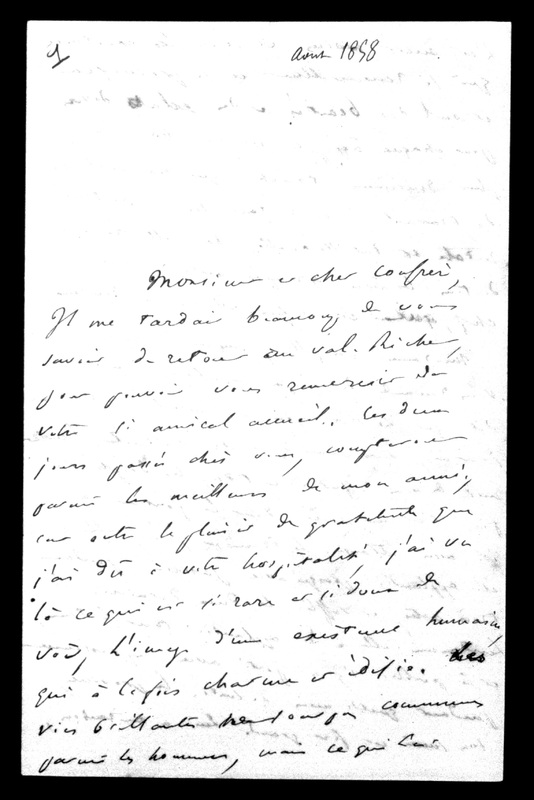 1
Aout 1858
Monsieur et cher Confrère,
Il me tardait beaucoup de vous
savoir de retour au Val-Richer,
pour pouvoir vous remercier de
votre si amical accueil. Ces deux
jours passés chez vous, compteront
parmi les meilleurs de mon année,
car outre le plaisir de gratitude que
j'ai dû à votre hospitalité, j'ai vu
là ce qui est si rare et si doux de
voir, l'image d'une existence humaine,
qui à la fois charme et édifie. Les
vies brillantes ne sont pas communes
parmi les hommes, mais ce qui l'est